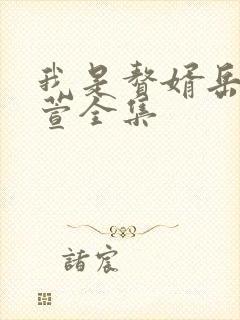 我是赘婿岳
萱全集
诸宸